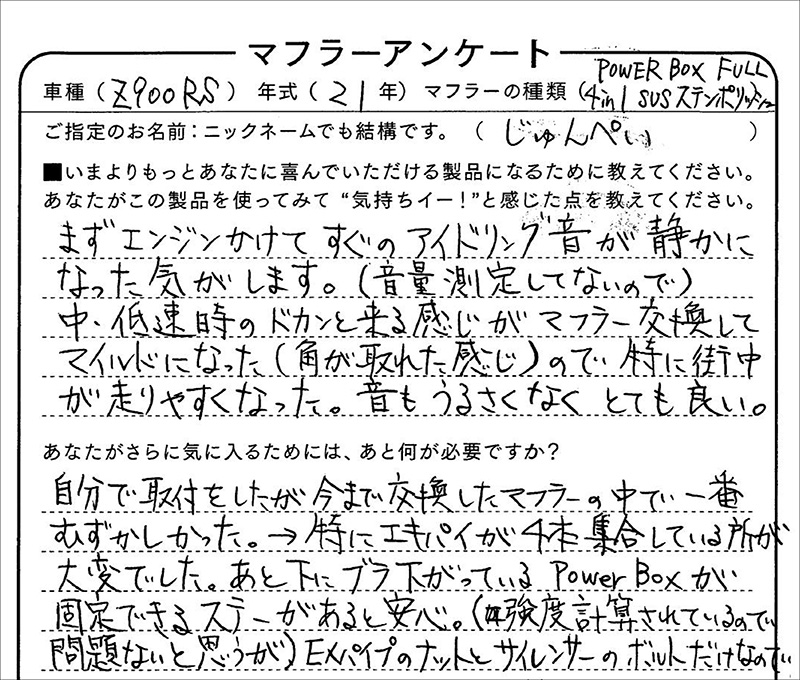 マフラーアンケート
車種(Z900RS) 年式(21年) マフラーの種類(POWER BOX FULL 4in1 SUSステンポリッシュ
ご指定のお名前:ニックネームでも結構です。 ( じゅんぺい )
■いまよりもっとあなたに喜んでいただける製品になるために教えてください。
あなたがこの製品を使ってみて“気持ちイー!”と感じた点を教えてください。
まずエンジンかけてすぐのアイドリング音が静かに
なった気がします。(音量測定してないので)
中・低速時のドカンと来る感じがマフラー交換して
マイルドになった(角が取れた感じ)ので特に街中
が走りやすくなった。音もうるさくなくとても良い。
あなたがさらに気に入るためには、あと何が必要ですか?
自分で取付をしたが今まで交換したマフラーの中で一番
むずかしかった。→特にエキパイが4本集合している所が
大変でした。あと下にブラ下がっているPower Boxが
固定できるステーがあると安心。(強度計算されているので
問題ないと思うが)EXパイプのナットとサイレンサーのボルトだけなので